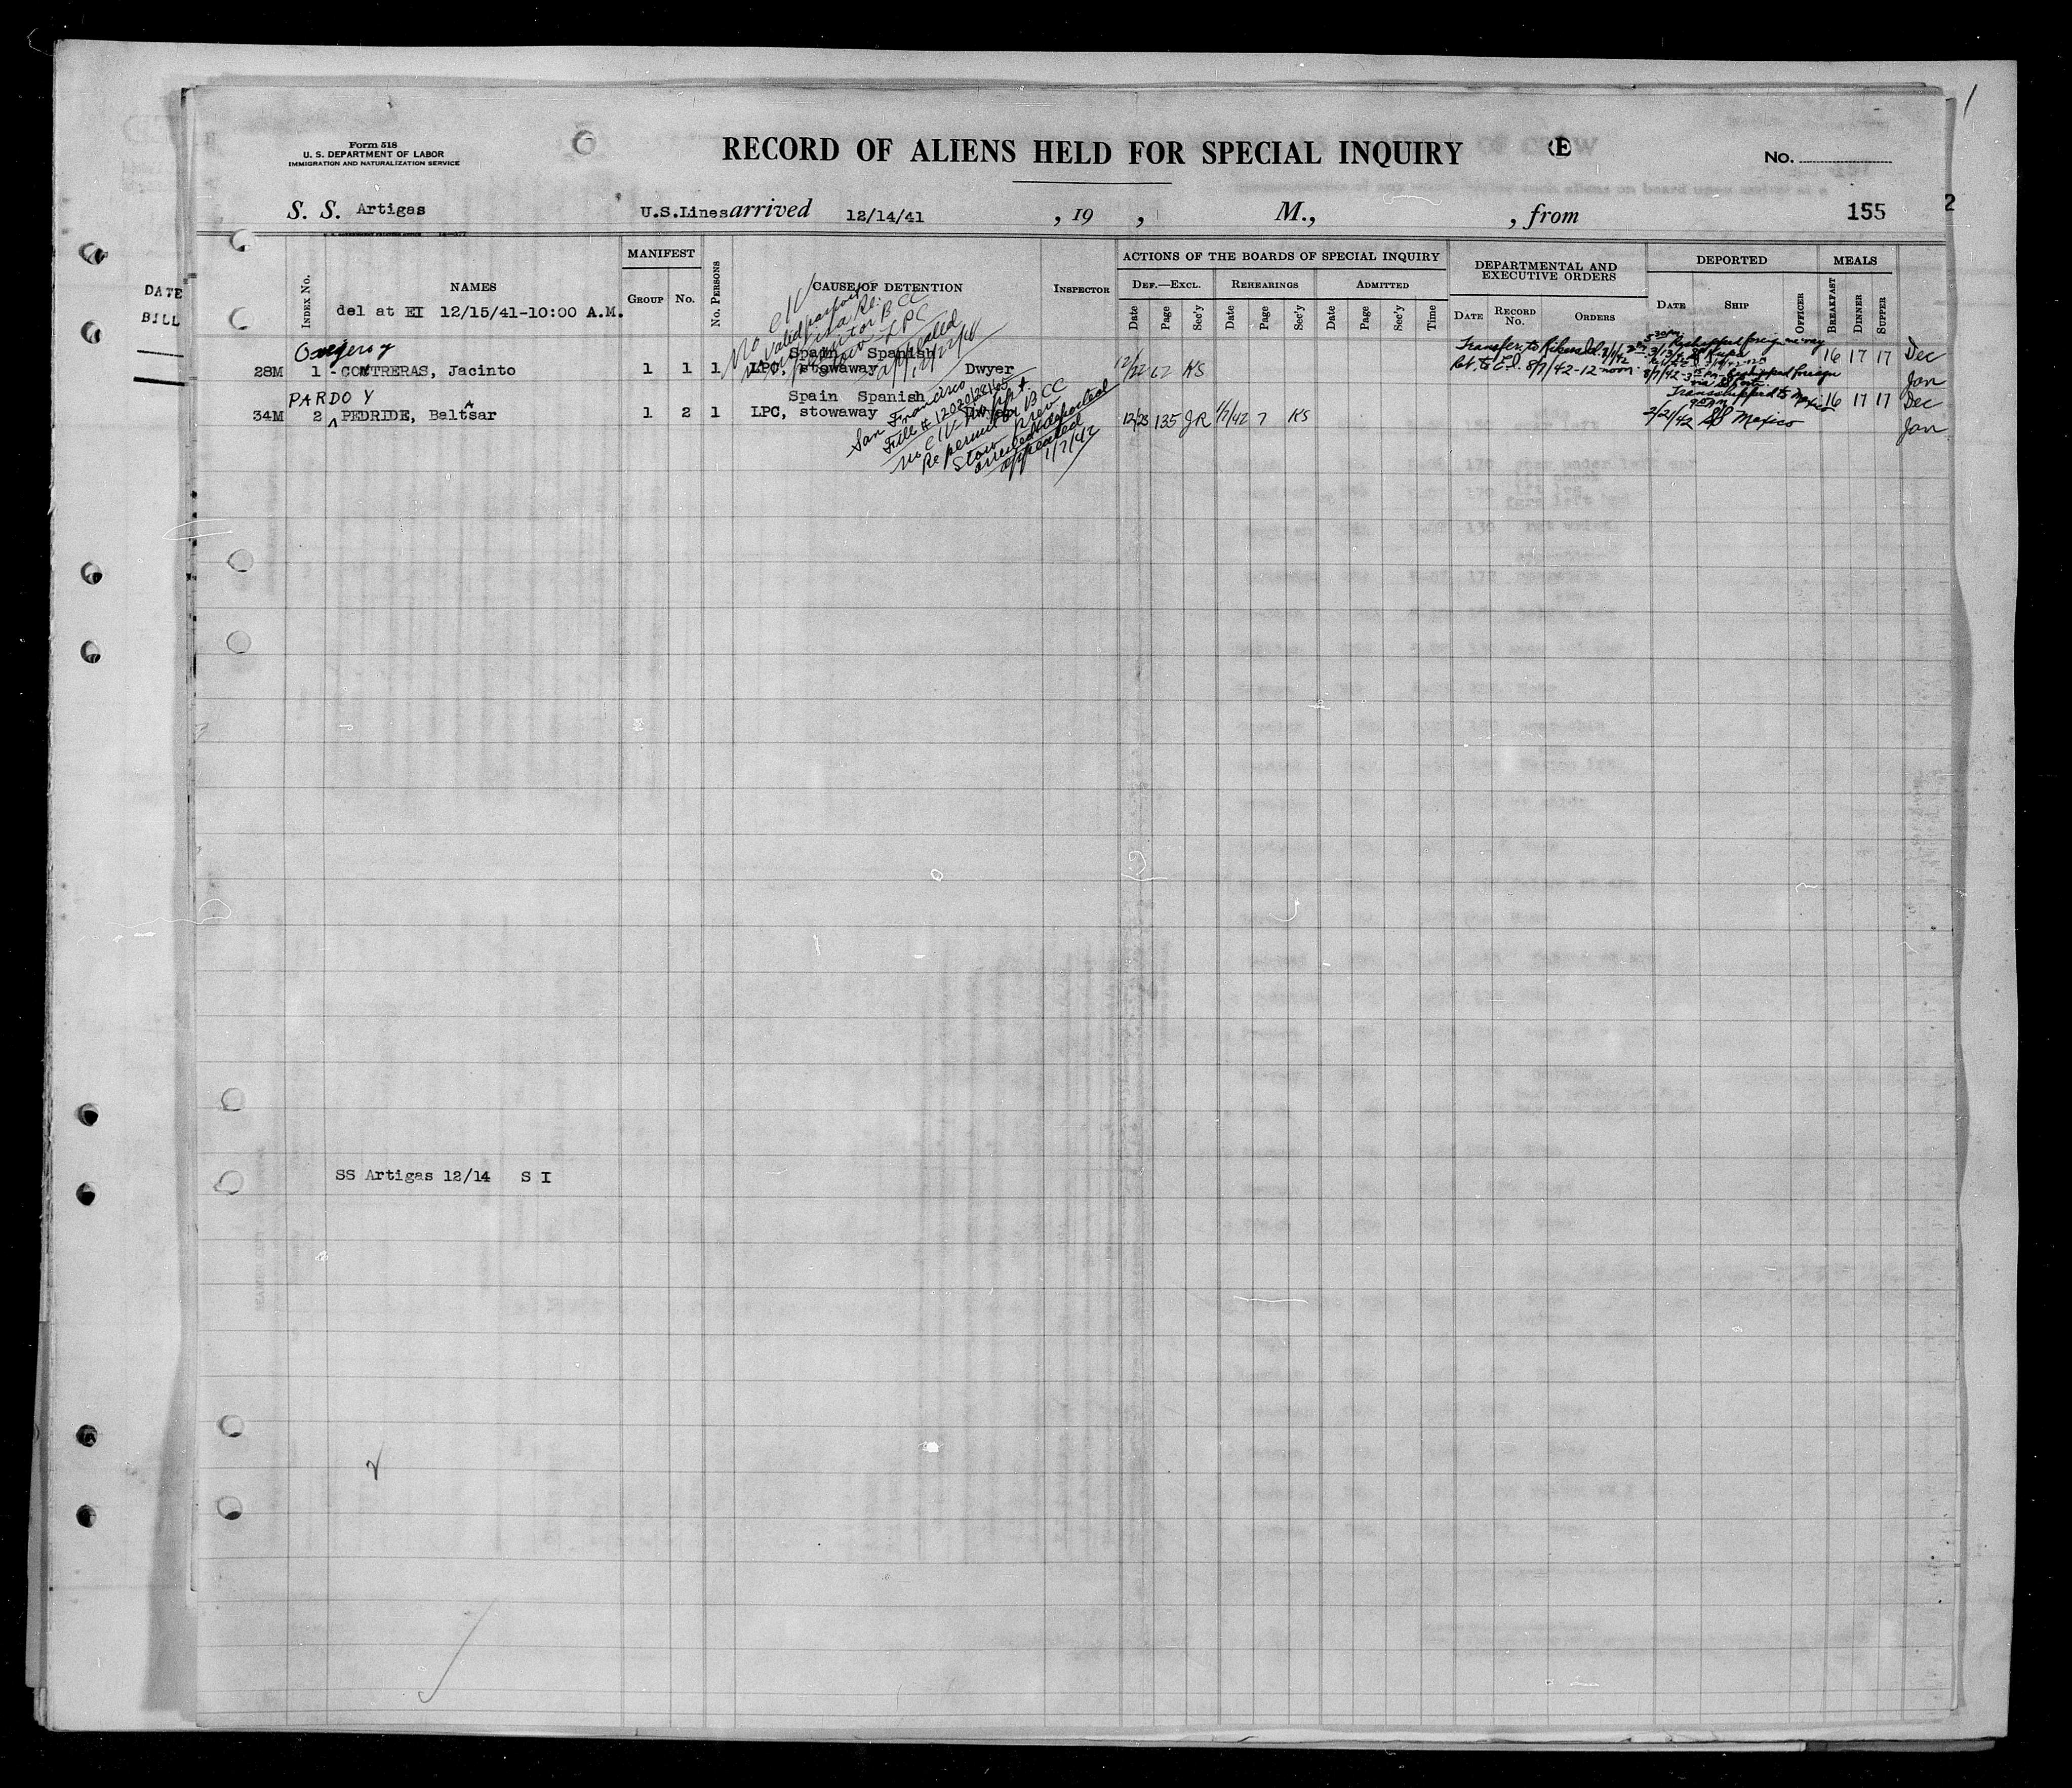 Form 518
U. S. DEPARTMENT OF LABOR
IMMIGRATION AND NATURALIZATION SERVICE
RECORD OF ALIENS HELD FOR SPECIAL INQUIRY
(E
No.
S. S. Artigas U.S.Lines arrived 12/14/41 , 19 , M., , from 155
2
DATE
BILL
Index No.
NAMES
del at EI 12/15/41-10:00 A.M.
MANIFEST
Group No.
No. Persons
CAUSE OF DETENTION
Inspector
ACTIONS OF THE BOARDS OF SPECIAL INQUIRY
Def.—Excl. Rehearings Admitted
Date Page Sec'y Date Page Sec'y Date Page Sec'y Time
DEPARTMENTAL AND
EXECUTIVE ORDERS
Date Record No. Orders
DEPORTED
Date Ship Officer
MEALS
Breakfast Dinner Supper
No CIV
valid passport
appealed
12/22/41
Spain Spanish
28M 1 - CONTRERAS, Jacinto 1 1 1 LPC, stowaway Dwyer 12/22 62 KS 16 17 17 Dec
Jan
Transfer to Rikers Id.
Ret. to E.I. 8/7/42-12 noon
Reshipped foreign
PARDO Y
Spain Spanish
34M 2 PEDRIDE, Baltsar 1 2 1 LPC, stowaway Dwyer 12/23 135 JR 1/7/42 7 KS 16 17 17 Dec
A
Jan
Transshipped to Mexico
2/21/42 SS Mexico
San Francisco
File # 12020/28165
No CIV No ppt
Re permit BCC
Stow Prev
arrested & deported
appealed
1/7/42
SS Artigas 12/14 S I